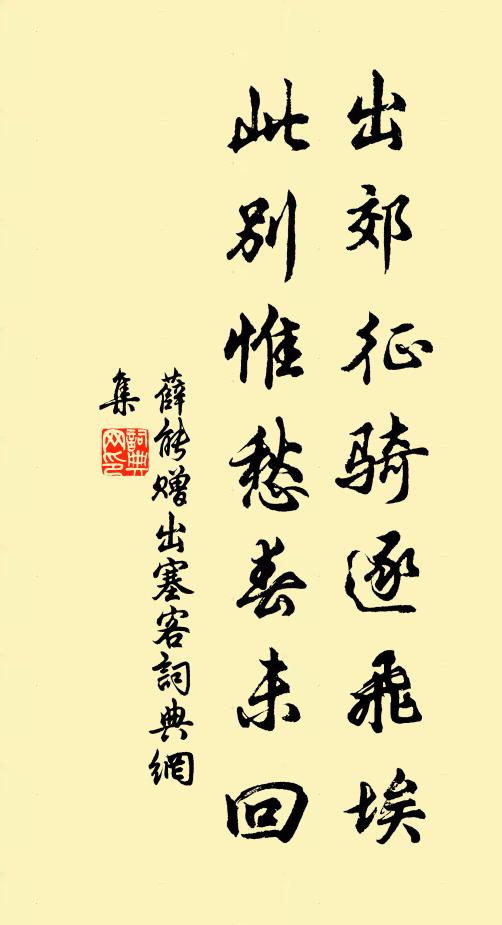 出郊征骑逐飛埃
此别惟愁春未回
薛能赠出塞客詞典網
集
詞典网印